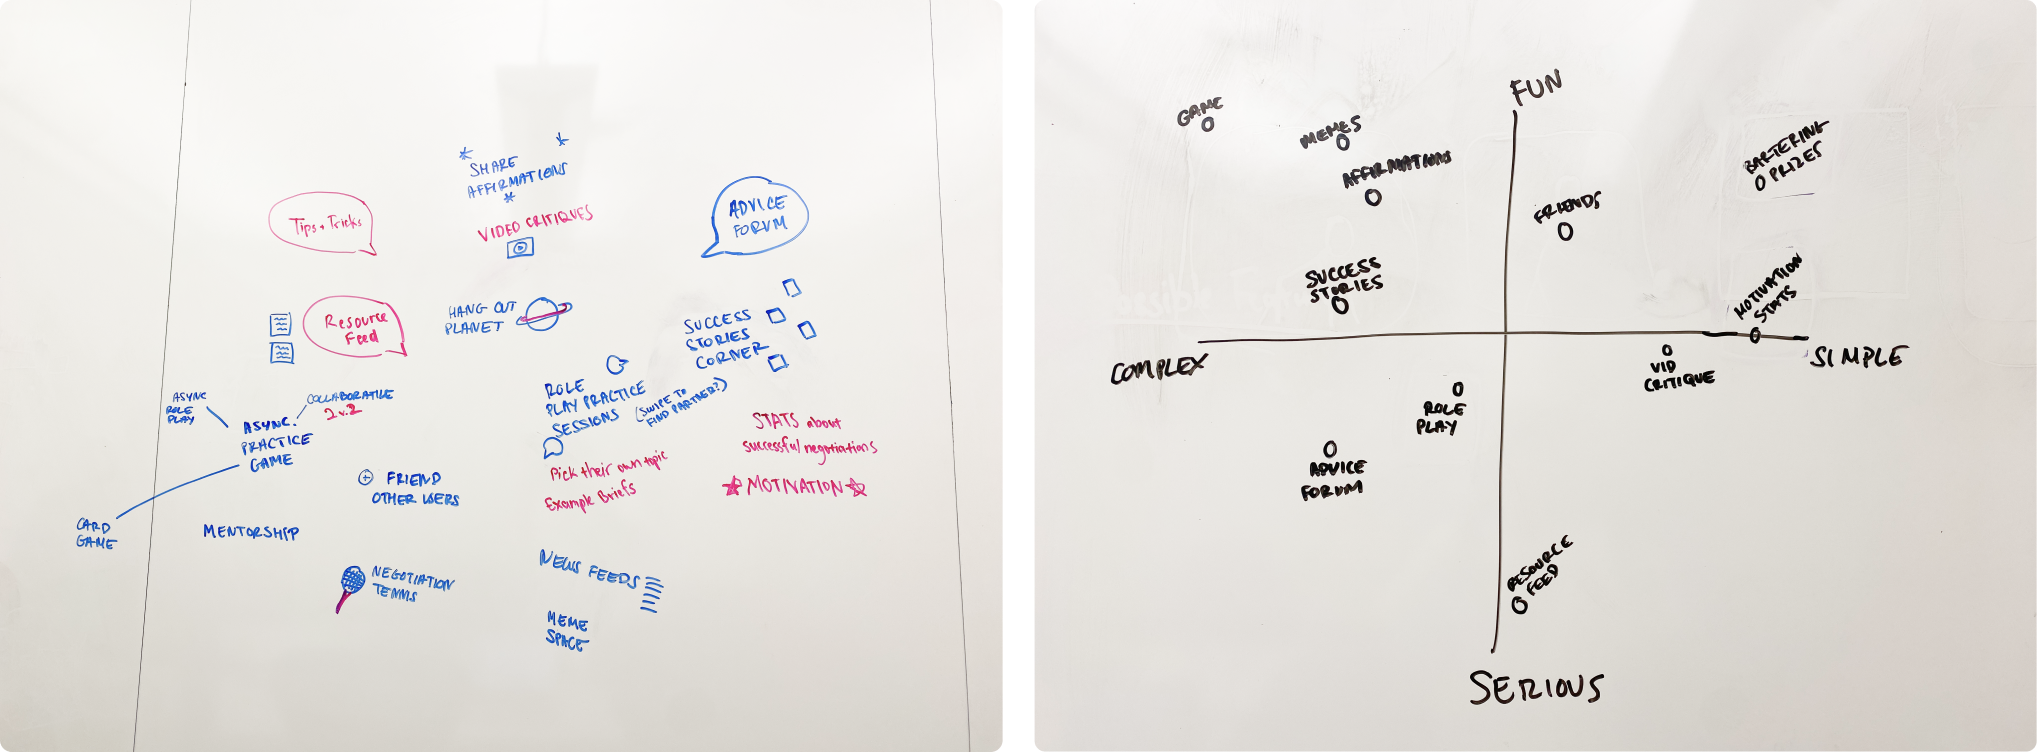 SHARE
AFFIRMATIONS
Tips + Tricks
VIDEO CRITIQUES
ADVICE
FORUM
Resource
Feed
HANG OUT
PLANET
SUCCESS
STORIES
CORNER
ASYNC
ROLE
PLAY
COLLABORATIVE
2 v. 2
ASYNC.
PRACTICE
GAME
ROLE
PLAY PRACTICE
SESSIONS
(SWIPE TO
FIND PARTNER?)
Pick their own topic
Example Briefs
STATS about
successful negotiations
MOTIVATION
FRIEND
OTHER USERS
CARD
GAME
MENTORSHIP
NEGOTIATION
TENNIS
NEWS FEEDS
MEME
SPACE
FUN
GAME
MEMES
AFFIRMATIONS
BARTERING
PRIZES
FRIENDS
SUCCESS
STORIES
MOTIVATION
STATS
COMPLEX
SIMPLE
VID
CRITIQUE
ROLE
PLAY
ADVICE
FORUM
RESOURCE
FEED
SERIOUS